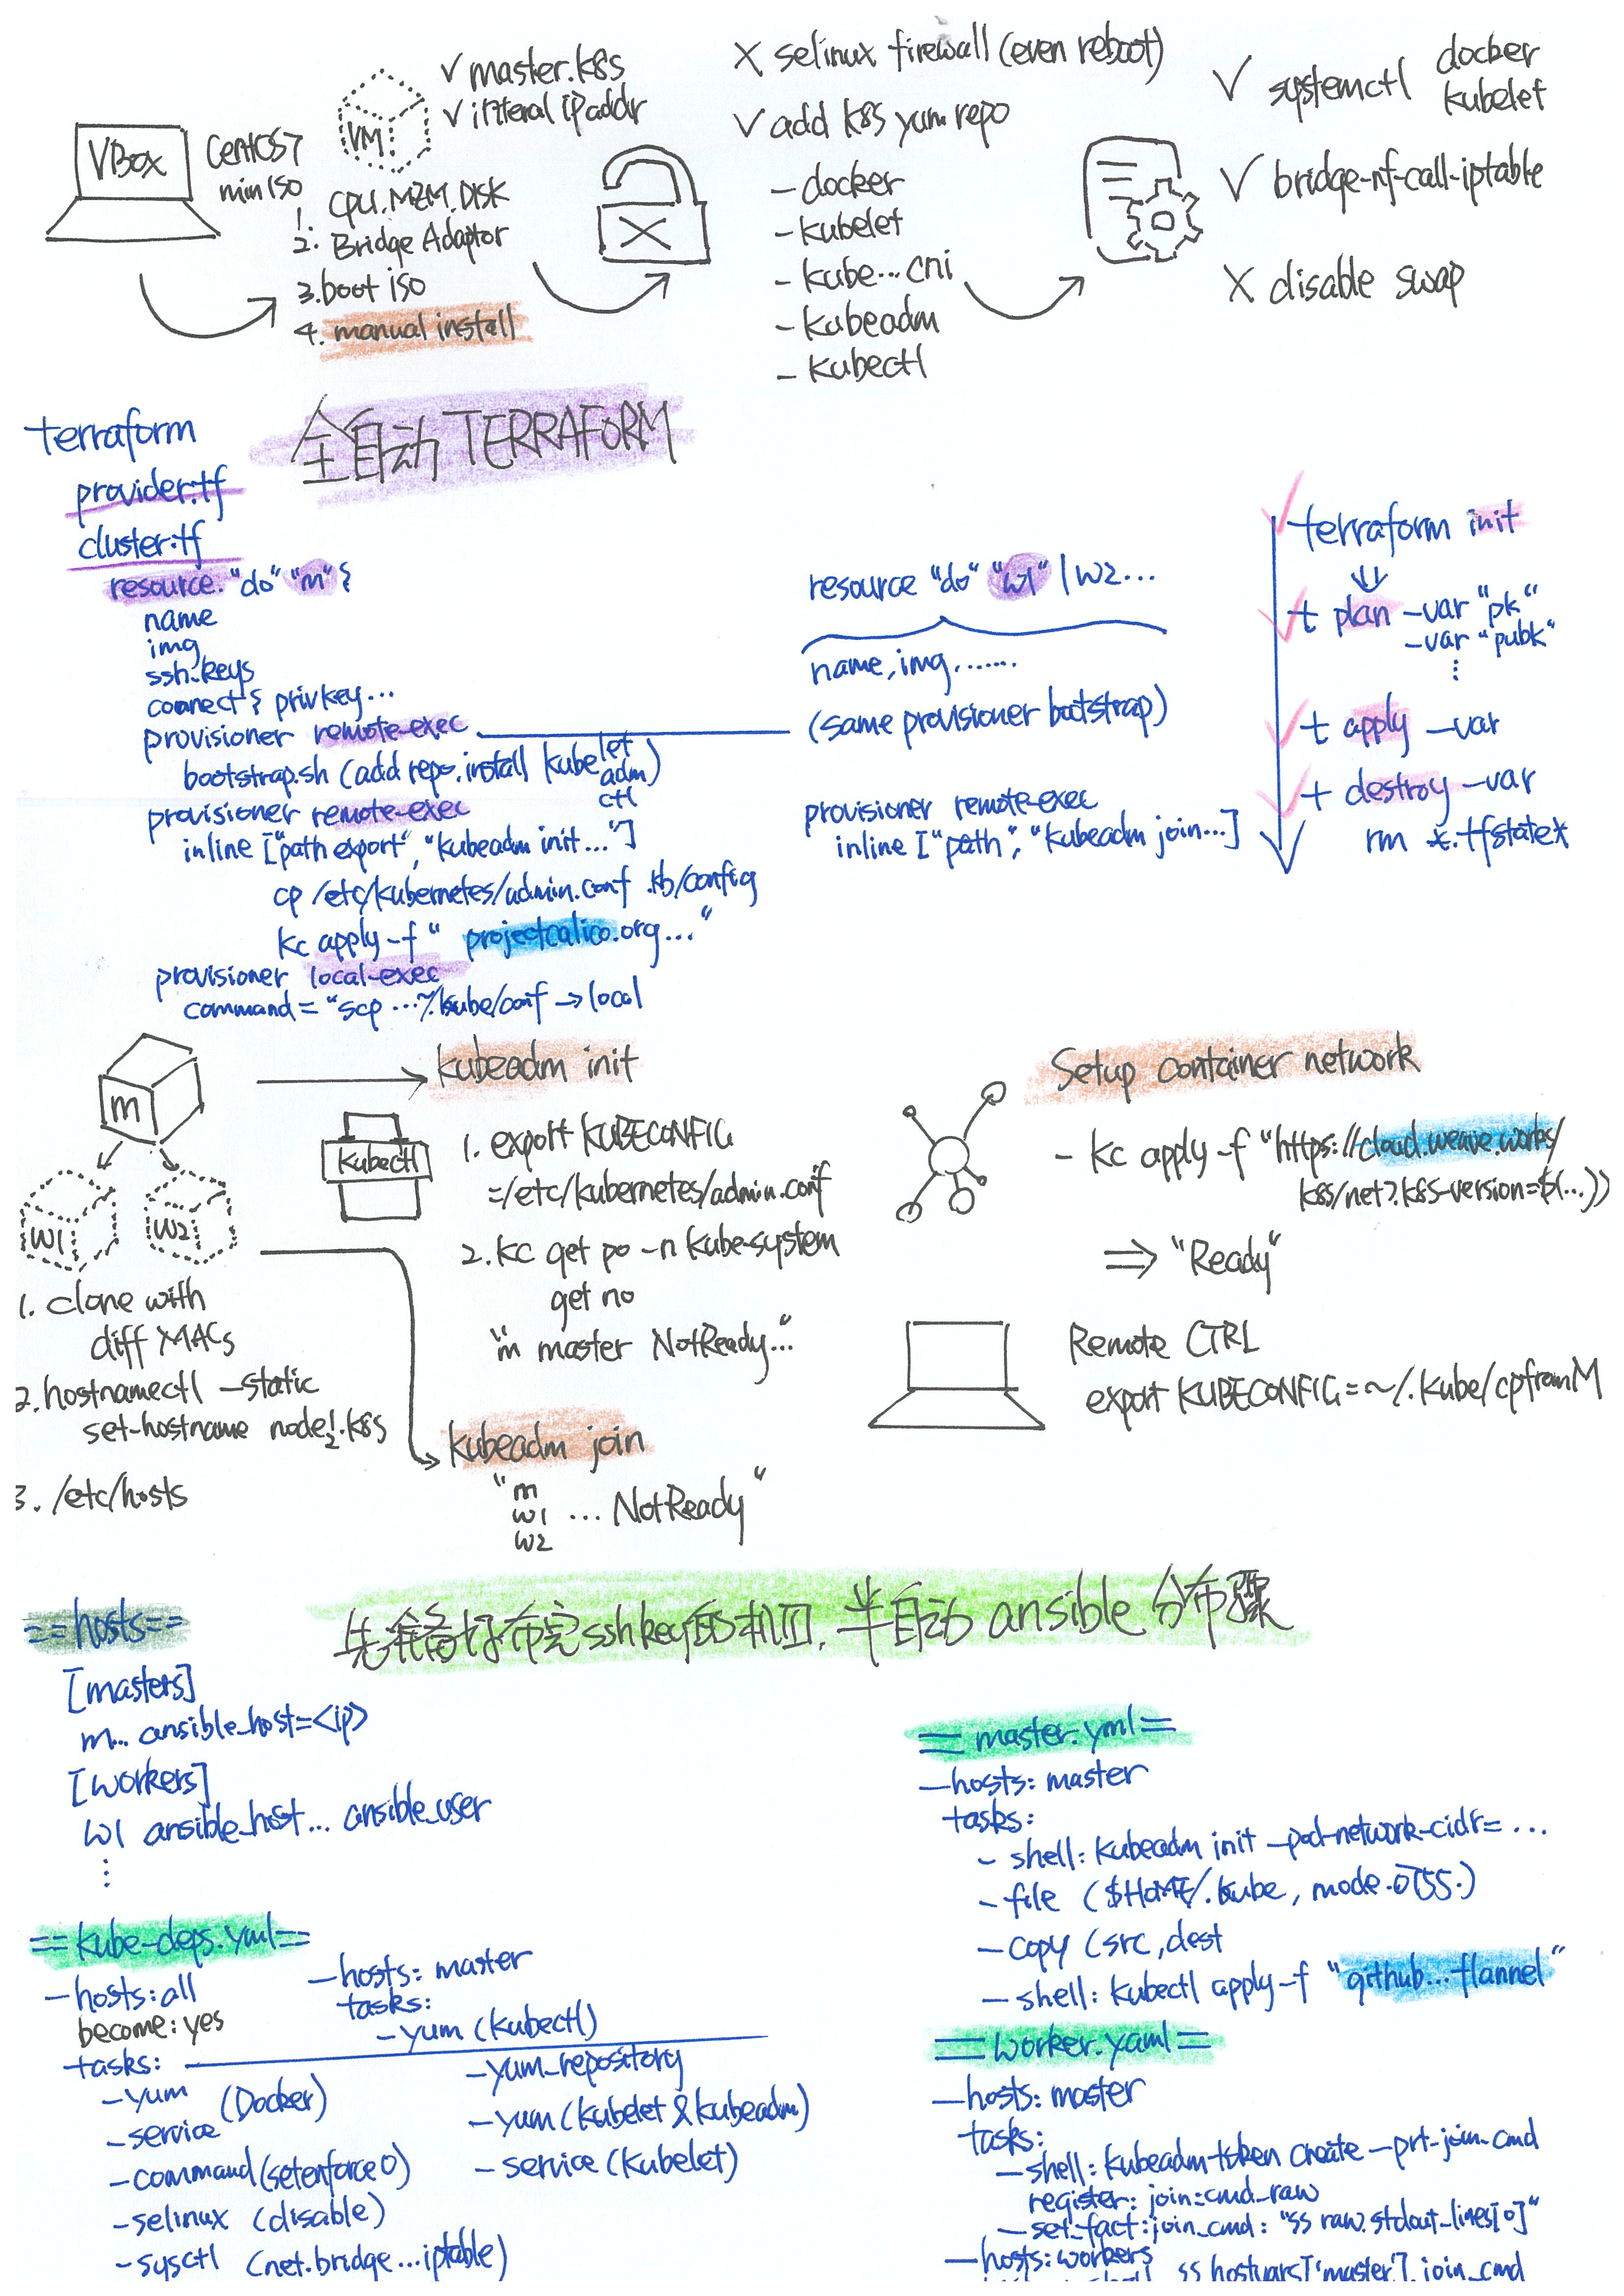 VBox
CentOS7
min ISO
VM
✓ master.k8s
✓ internal ip addr
1. CPU.MEM.DISK
2. Bridge Adaptor
3. boot iso
4. manual install
X selinux firewall (even reboot)
✓ add k8s yum repo
- docker
- kubelet
- kube...cni
- kubeadm
- kubectl
✓ systemctl docker
kubelet
✓ bridge-nf-call-iptable
X disable swap
全自动 TERRAFORM
terraform
provider.tf
cluster.tf
resource "do" "m" {
name
img
ssh_keys
connect { privkey...
provisioner remote-exec
bootstrap.sh (add repo, install kube let
adm)
ctl
provisioner remote-exec
inline ["path export", "kubeadm init..."]
cp /etc/kubernetes/admin.conf .kb/config
kc apply -f " projectcalico.org..."
provisioner local-exec
command = "scp ...~/.kube/conf → local
resource "do" "w1" | w2...
name, img.......
(same provisioner bootstrap)
provisioner remote-exec
inline ["path", "kubeadm join...]
terraform init
t plan -var "pk"
-var "pubk"
t apply -var
t destroy -var
rm *.tfstate*
m
w1
w2
1. clone with
diff MACs
2. hostnamectl --static
set-hostname node1/2.k8s
3. /etc/hosts
kubeadm init
kubectl
1. export KUBECONFIG
=/etc/kubernetes/admin.conf
2. kc get po -n kube-system
get no
"m master NotReady..."
kubeadm join
"m
w1 ... NotReady"
w2
Setup container network
- kc apply -f "https://cloud.weave.works/
k8s/net?k8s-version=$(...))
⇒ "Ready"
Remote CTRL
export KUBECONFIG=~/.kube/cpfromM
先准备好布完sshkey的机四, 半自动 ansible 分布骤
==hosts==
[masters]
m... ansible_host=<ip>
[workers]
w1 ansible_host... ansible_user
==kube-deps.yml==
- hosts: all
become: yes
tasks:
- yum (Docker)
- service
- command (setenforce 0)
- selinux (disable)
- sysctl (net.bridge...iptable)
- hosts: master
tasks:
- yum (kubectl)
- yum_repository
- yum (kubelet & kubeadm)
- service (kubelet)
== master.yml ==
- hosts: master
tasks:
- shell: kubeadm init --pod-network-cidr= ...
- file ($HOME/.kube, mode.0755.)
- copy (src, dest
- shell: kubectl apply -f "github...flannel"
== worker.yaml ==
- hosts: master
tasks:
- shell: kubeadm token create --prt-join-cmd
register: join_cmd_raw
- set_fact: join_cmd: "{{ raw.stdout_lines[0]"
- hosts: workers
{{ hostvars['master'].join_cmd